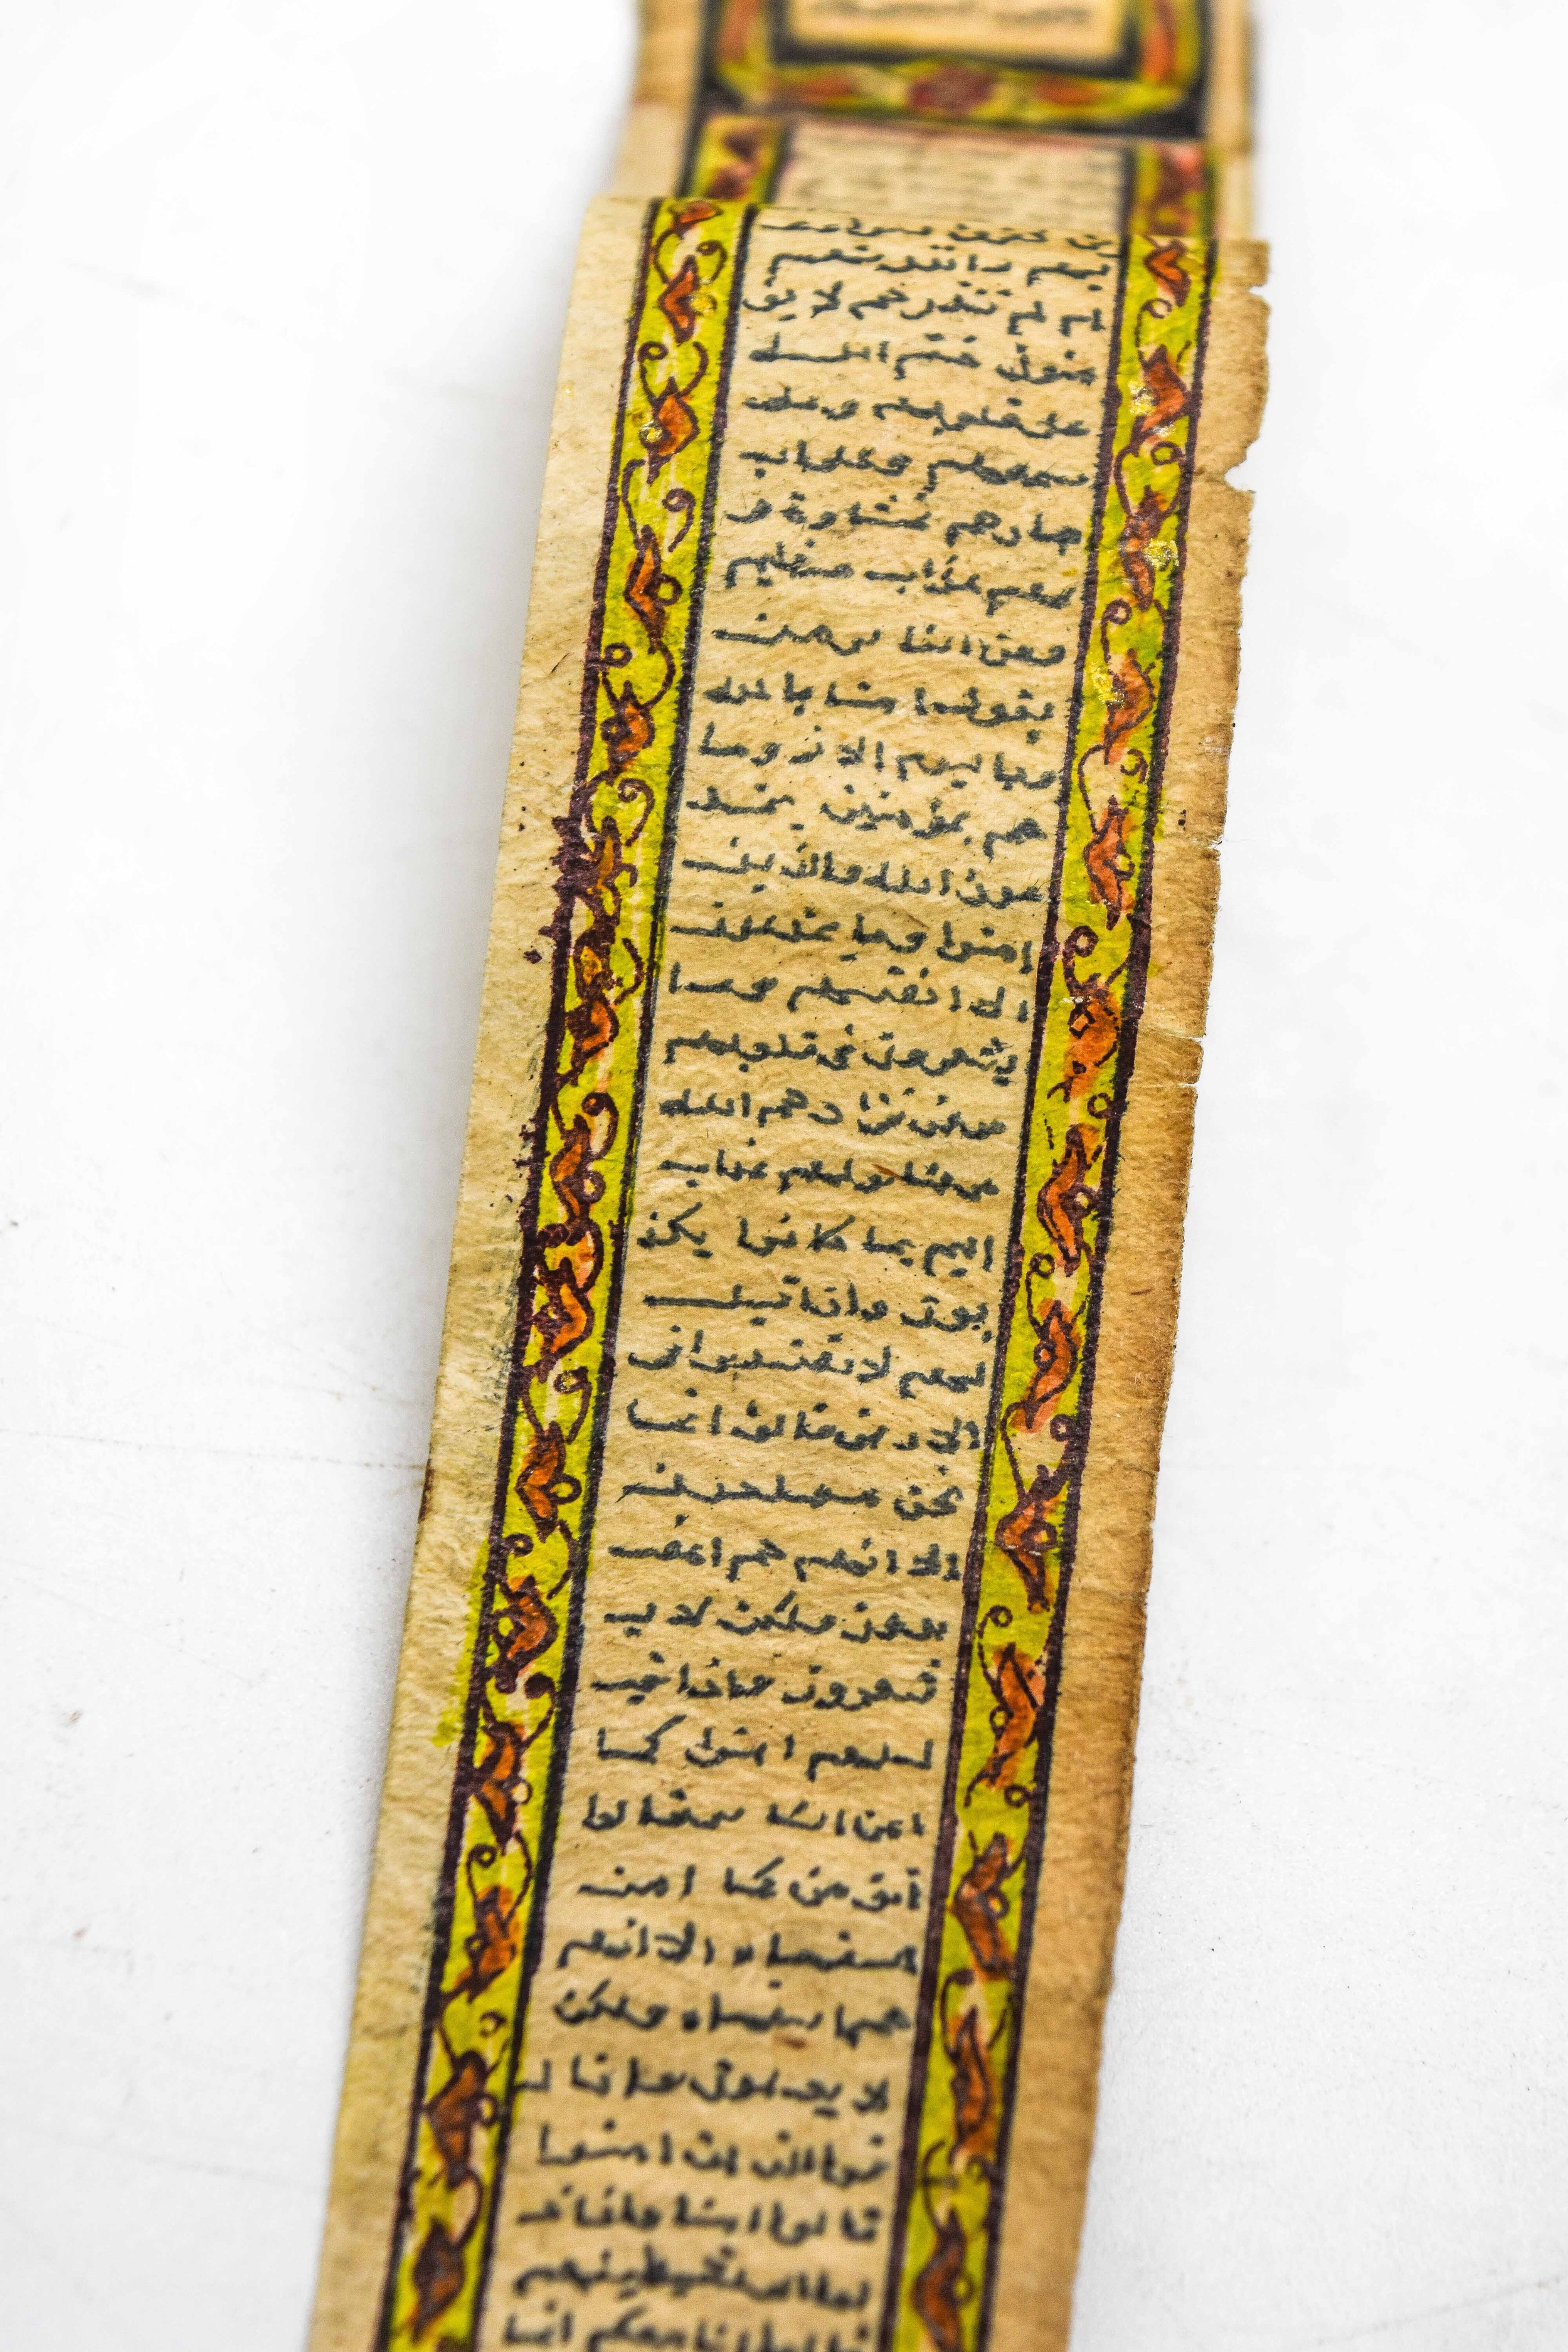 يهم ءانذرتهم
ام لم تنذرهم لا يو
منون ختم الله
على قلوبهم وعلى
سمعهم وعلى اب
صارهم غشاوة و
لهم عذاب عظيم
ومن الناس من
يقول امنا بالله
وباليوم الاخر وما
هم بمؤمنين يخد
عون الله والذين
امنوا وما يخدعون
الا انفسهم وما
يشعرون في قلوبهم
مرض فزادهم الله
مرضا ولهم عذاب
اليم بما كانوا يكذ
بون واذا قيل
لهم لا تفسدوا في
الارض قالوا انما
نحن مصلحون
الا انهم هم المفسد
ون ولكن لا يش
عرون واذا قيل
لهم امنوا كما
امن الناس قالوا
انومن كما امن
السفهاء الا انهم
هم السفهاء ولكن
لا يعلمون واذا ل
قوا الذين امنوا
قالوا امنا واذا خ
لوا الى شيطينهم
قالوا انا معكم انما